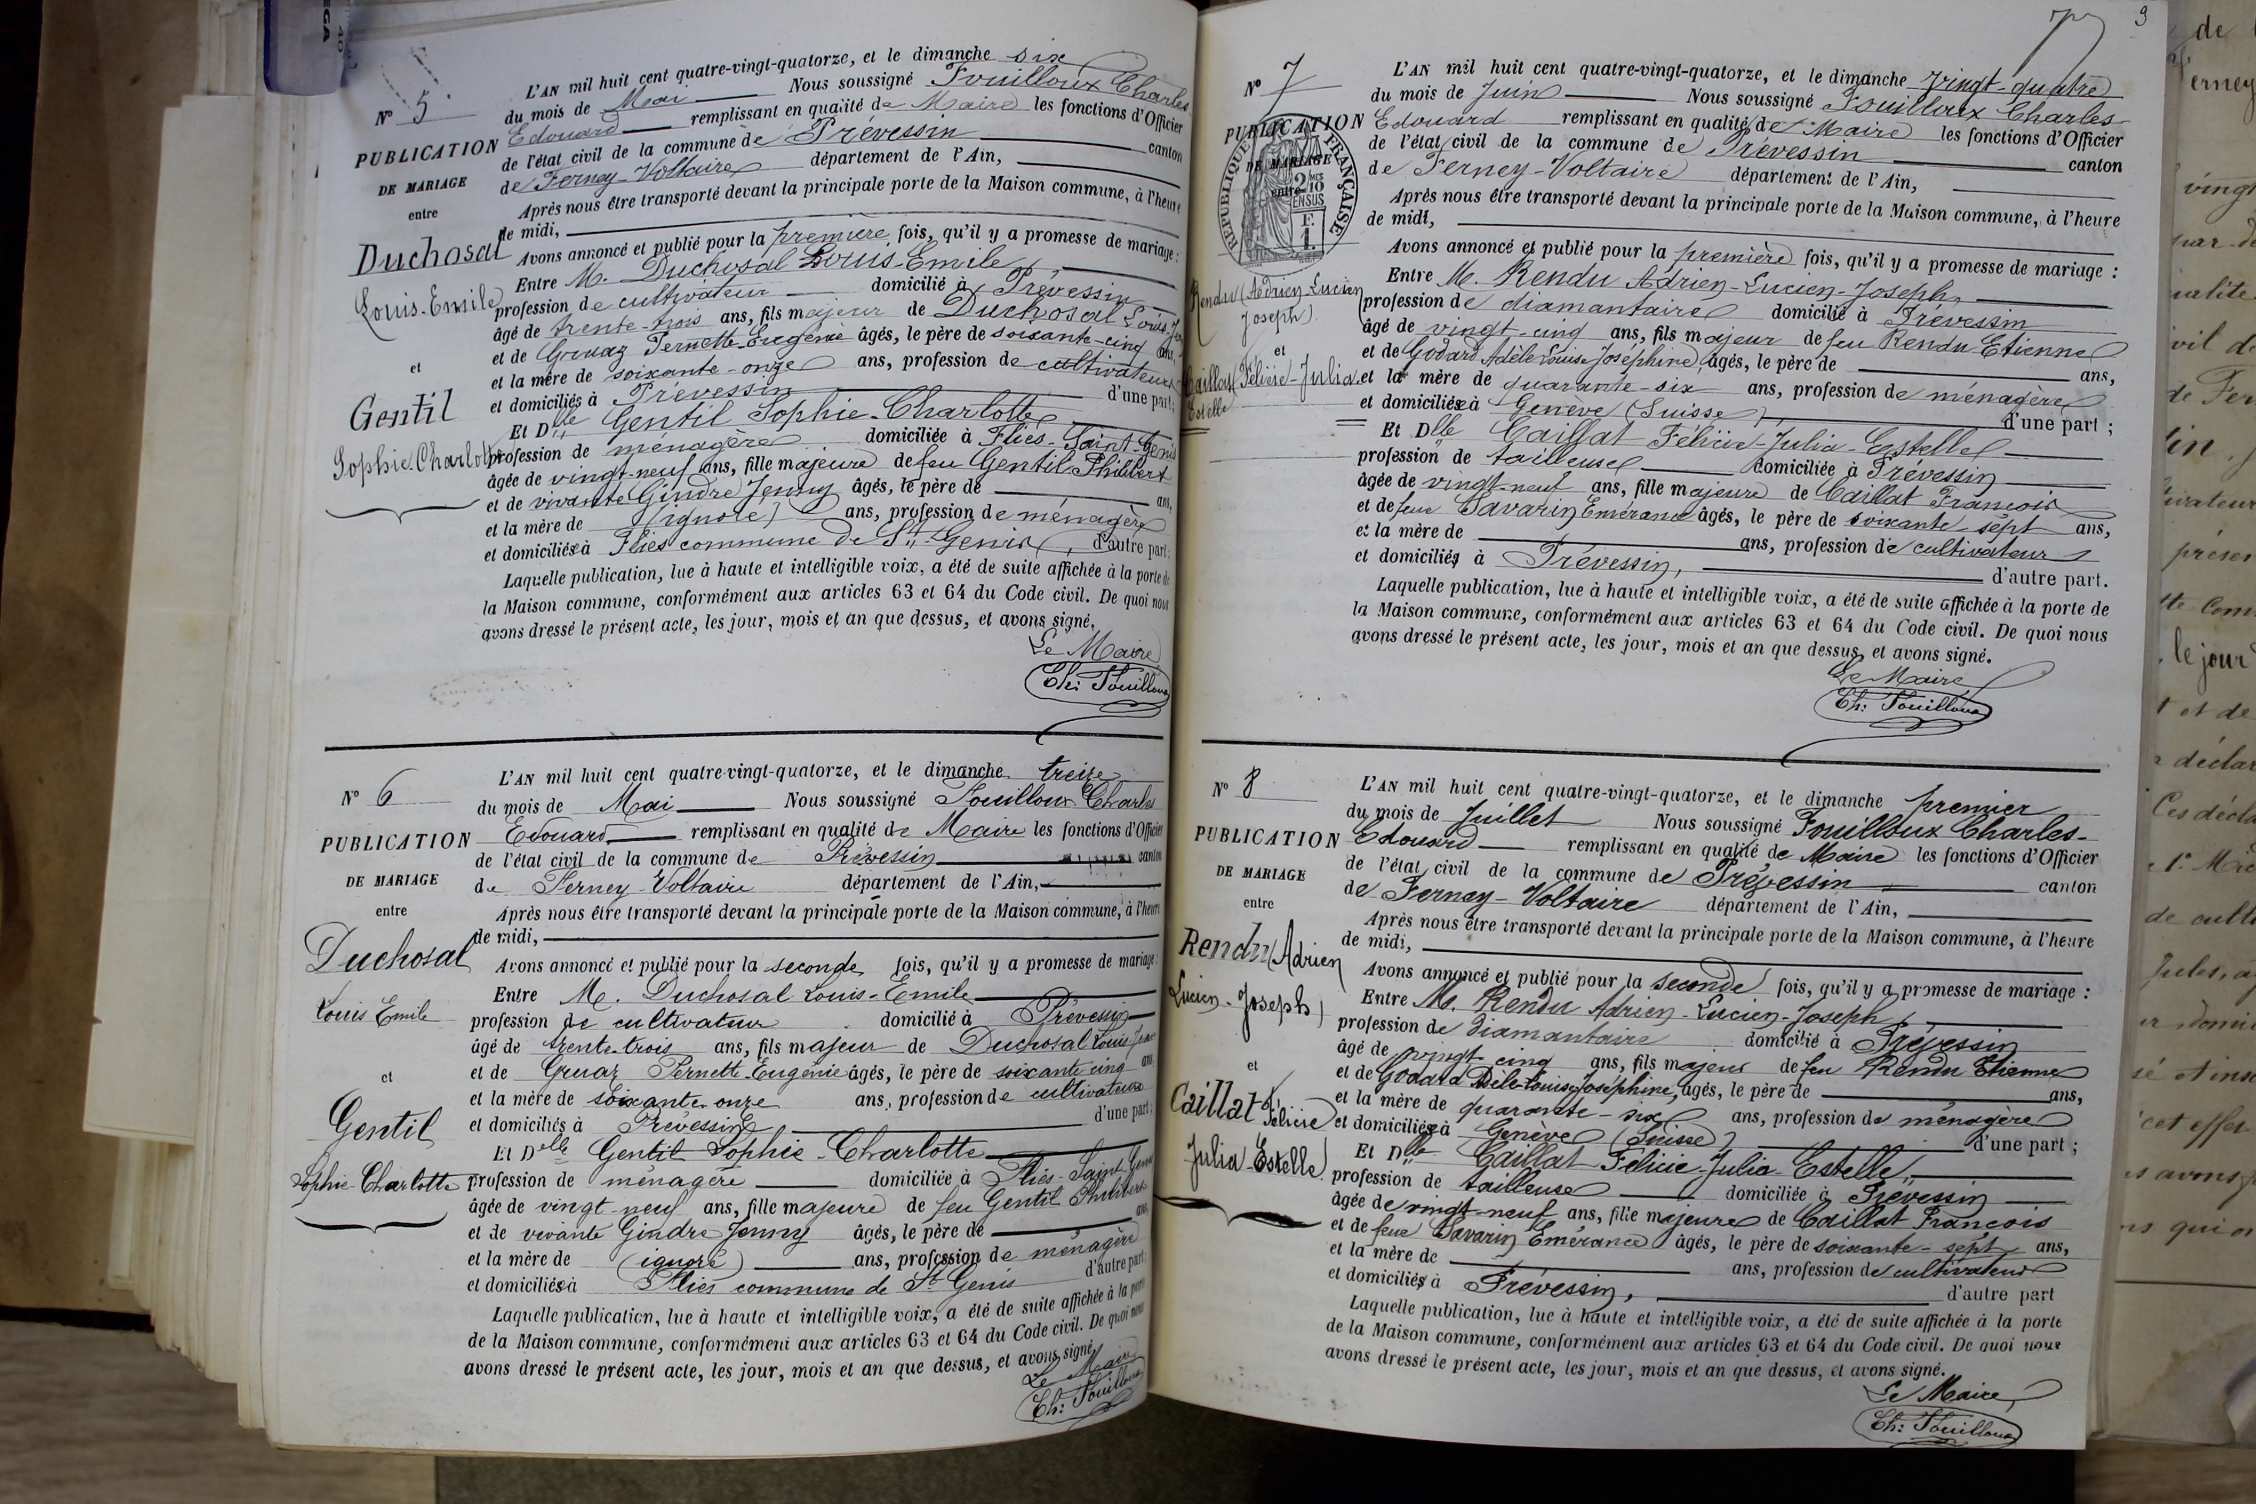 N° 5
PUBLICATION
DE MARIAGE
entre
Duchosal
Louis-Emile
et
Gentil
Sophie Charlotte
L'AN mil huit cent quatre-vingt-quatorze, et le dimanche six
du mois de Mai Nous soussigné Fouilloux Charles
Edouard remplissant en qualité de Maire les fonctions d'Officier
de l'état civil de la commune de Prévessin canton
de Ferney-Voltaire département de l'Ain,
Après nous être transporté devant la principale porte de la Maison commune, à l'heure
de midi,
Avons annoncé et publié pour la première fois, qu'il y a promesse de mariage :
Entre M. Duchosal Louis-Emile,
profession de cultivateur domicilié à Prévessin
âgé de trente-trois ans, fils majeur de Duchosal Louis
et de Gruaz Pernette-Eugénie âgés, le père de soixante-cinq ans,
et la mère de soixante-onze ans, profession de cultivateurs
et domiciliés à Prévessin d'une part;
Et Dlle Gentil Sophie-Charlotte
profession de ménagère domiciliée à Fliès-Saint-Genis
âgée de vingt-neuf ans, fille majeure de feu Gentil Philibert
et de vivante Gindre Jenny âgés, le père de ans,
et la mère de (ignoré) ans, profession de ménagère
et domiciliée à Fliès commune de St-Genis, d'autre part.
Laquelle publication, lue à haute et intelligible voix, a été de suite affichée à la porte de
la Maison commune, conformément aux articles 63 et 64 du Code civil. De quoi nous
avons dressé le présent acte, les jour, mois et an que dessus, et avons signé.
Le Maire
Ch: Fouilloux
N° 6
PUBLICATION
DE MARIAGE
entre
Duchosal
Louis Emile
et
Gentil
Sophie-Charlotte
L'AN mil huit cent quatre-vingt-quatorze, et le dimanche treize
du mois de Mai Nous soussigné Fouilloux Charles
Edouard remplissant en qualité de Maire les fonctions d'Officier
de l'état civil de la commune de Prévessin canton
de Ferney-Voltaire département de l'Ain,
Après nous être transporté devant la principale porte de la Maison commune, à l'heure
de midi,
Avons annoncé et publié pour la seconde fois, qu'il y a promesse de mariage :
Entre M. Duchosal Louis-Emile
profession de cultivateur domicilié à Prévessin
âgé de trente-trois ans, fils majeur de Duchosal Louis
et de Gruaz Pernette-Eugénie âgés, le père de soixante cinq ans
et la mère de soixante-onze ans, profession de cultivateurs
et domiciliés à Prévessin d'une part;
Et Delle Gentil Sophie-Charlotte
profession de ménagère domiciliée à Fliès-Saint-Genis
âgée de vingt-neuf ans, fille majeure de feu Gentil Philibert
et de vivante Gindre Jenny âgés, le père de ans,
et la mère de (ignoré) ans, profession de ménagère
et domiciliée à Fliès commune de St Genis d'autre part.
Laquelle publication, lue à haute et intelligible voix, a été de suite affichée à la porte
de la Maison commune, conformément aux articles 63 et 64 du Code civil. De quoi nous
avons dressé le présent acte, les jour, mois et an que dessus, et avons signé.
Le Maire
Ch: Fouilloux
9
N° 7
PUBLICATION
DE MARIAGE
entre
RÉPUBLIQUE FRANÇAISE
2/10 EN SUS
Rendu (Adrien-Lucien
Joseph)
et
Caillat (Félicie-Julia
Estelle
L'AN mil huit cent quatre-vingt-quatorze, et le dimanche vingt-quatre
du mois de Juin Nous soussigné Fouilloux Charles-
Edouard remplissant en qualité de Maire les fonctions d'Officier
de l'état civil de la commune de Prévessin canton
de Ferney-Voltaire département de l'Ain,
Après nous être transporté devant la principale porte de la Maison commune, à l'heure
de midi,
Avons annoncé et publié pour la première fois, qu'il y a promesse de mariage :
Entre M. Rendu Adrien-Lucien-Joseph,
profession de diamantaire domicilié à Prévessin
âgé de vingt-cinq ans, fils majeur de feu Rendu Etienne
et de Godard Adèle Louise Joséphine, âgés, le père de ans,
et la mère de quarante-six ans, profession de ménagère
et domiciliée à Genève (Suisse) d'une part ;
Et Dlle Caillat Félicie-Julia-Estelle
profession de tailleuse domiciliée à Prévessin
âgée de vingt-neuf ans, fille majeure de Caillat François
et de feue Savarin Emérance âgés, le père de soixante-sept ans,
et la mère de ans, profession de cultivateur
et domiciliés à Prévessin, d'autre part.
Laquelle publication, lue à haute et intelligible voix, a été de suite affichée à la porte de
la Maison commune, conformément aux articles 63 et 64 du Code civil. De quoi nous
avons dressé le présent acte, les jour, mois et an que dessus, et avons signé.
Le Maire
Ch: Fouilloux
N° 8
PUBLICATION
DE MARIAGE
entre
Rendu (Adrien
Lucien-Joseph)
et
Caillat (Félicie
Julia-Estelle)
L'AN mil huit cent quatre-vingt-quatorze, et le dimanche premier
du mois de Juillet Nous soussigné Fouilloux Charles-
Edouard remplissant en qualité de Maire les fonctions d'Officier
de l'état civil de la commune de Prévessin canton
de Ferney-Voltaire département de l'Ain,
Après nous être transporté devant la principale porte de la Maison commune, à l'heure
de midi,
Avons annoncé et publié pour la seconde fois, qu'il y a promesse de mariage :
Entre M. Rendu Adrien-Lucien-Joseph,
profession de diamantaire domicilié à Prévessin
âgé de vingt-cinq ans, fils majeur de feu Rendu Etienne
et de Godard Adèle-Louise-Joséphine, âgés, le père de ans,
et la mère de quarante-six ans, profession de ménagère
et domiciliée à Genève (Suisse) d'une part ;
Et Dlle Caillat Félicie-Julia-Estelle,
profession de tailleuse domiciliée à Prévessin
âgée de vingt-neuf ans, fille majeure de Caillat François
et de feue Savarin Emérance âgés, le père de soixante-sept ans,
et la mère de ans, profession de cultivateur
et domiciliés à Prévessin, d'autre part
Laquelle publication, lue à haute et intelligible voix, a été de suite affichée à la porte
de la Maison commune, conformément aux articles 63 et 64 du Code civil. De quoi nous
avons dressé le présent acte, les jour, mois et an que dessus, et avons signé.
Le Maire,
Ch: Fouilloux